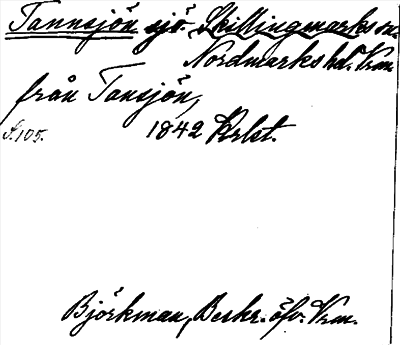 Tannsjön sjö. Skillingmarks sn.
Nordmarks hd. Vrm
från Tansjön,
S. 105. 1842 Krlst.
Björkman, Beskr. öfv. Vrm.